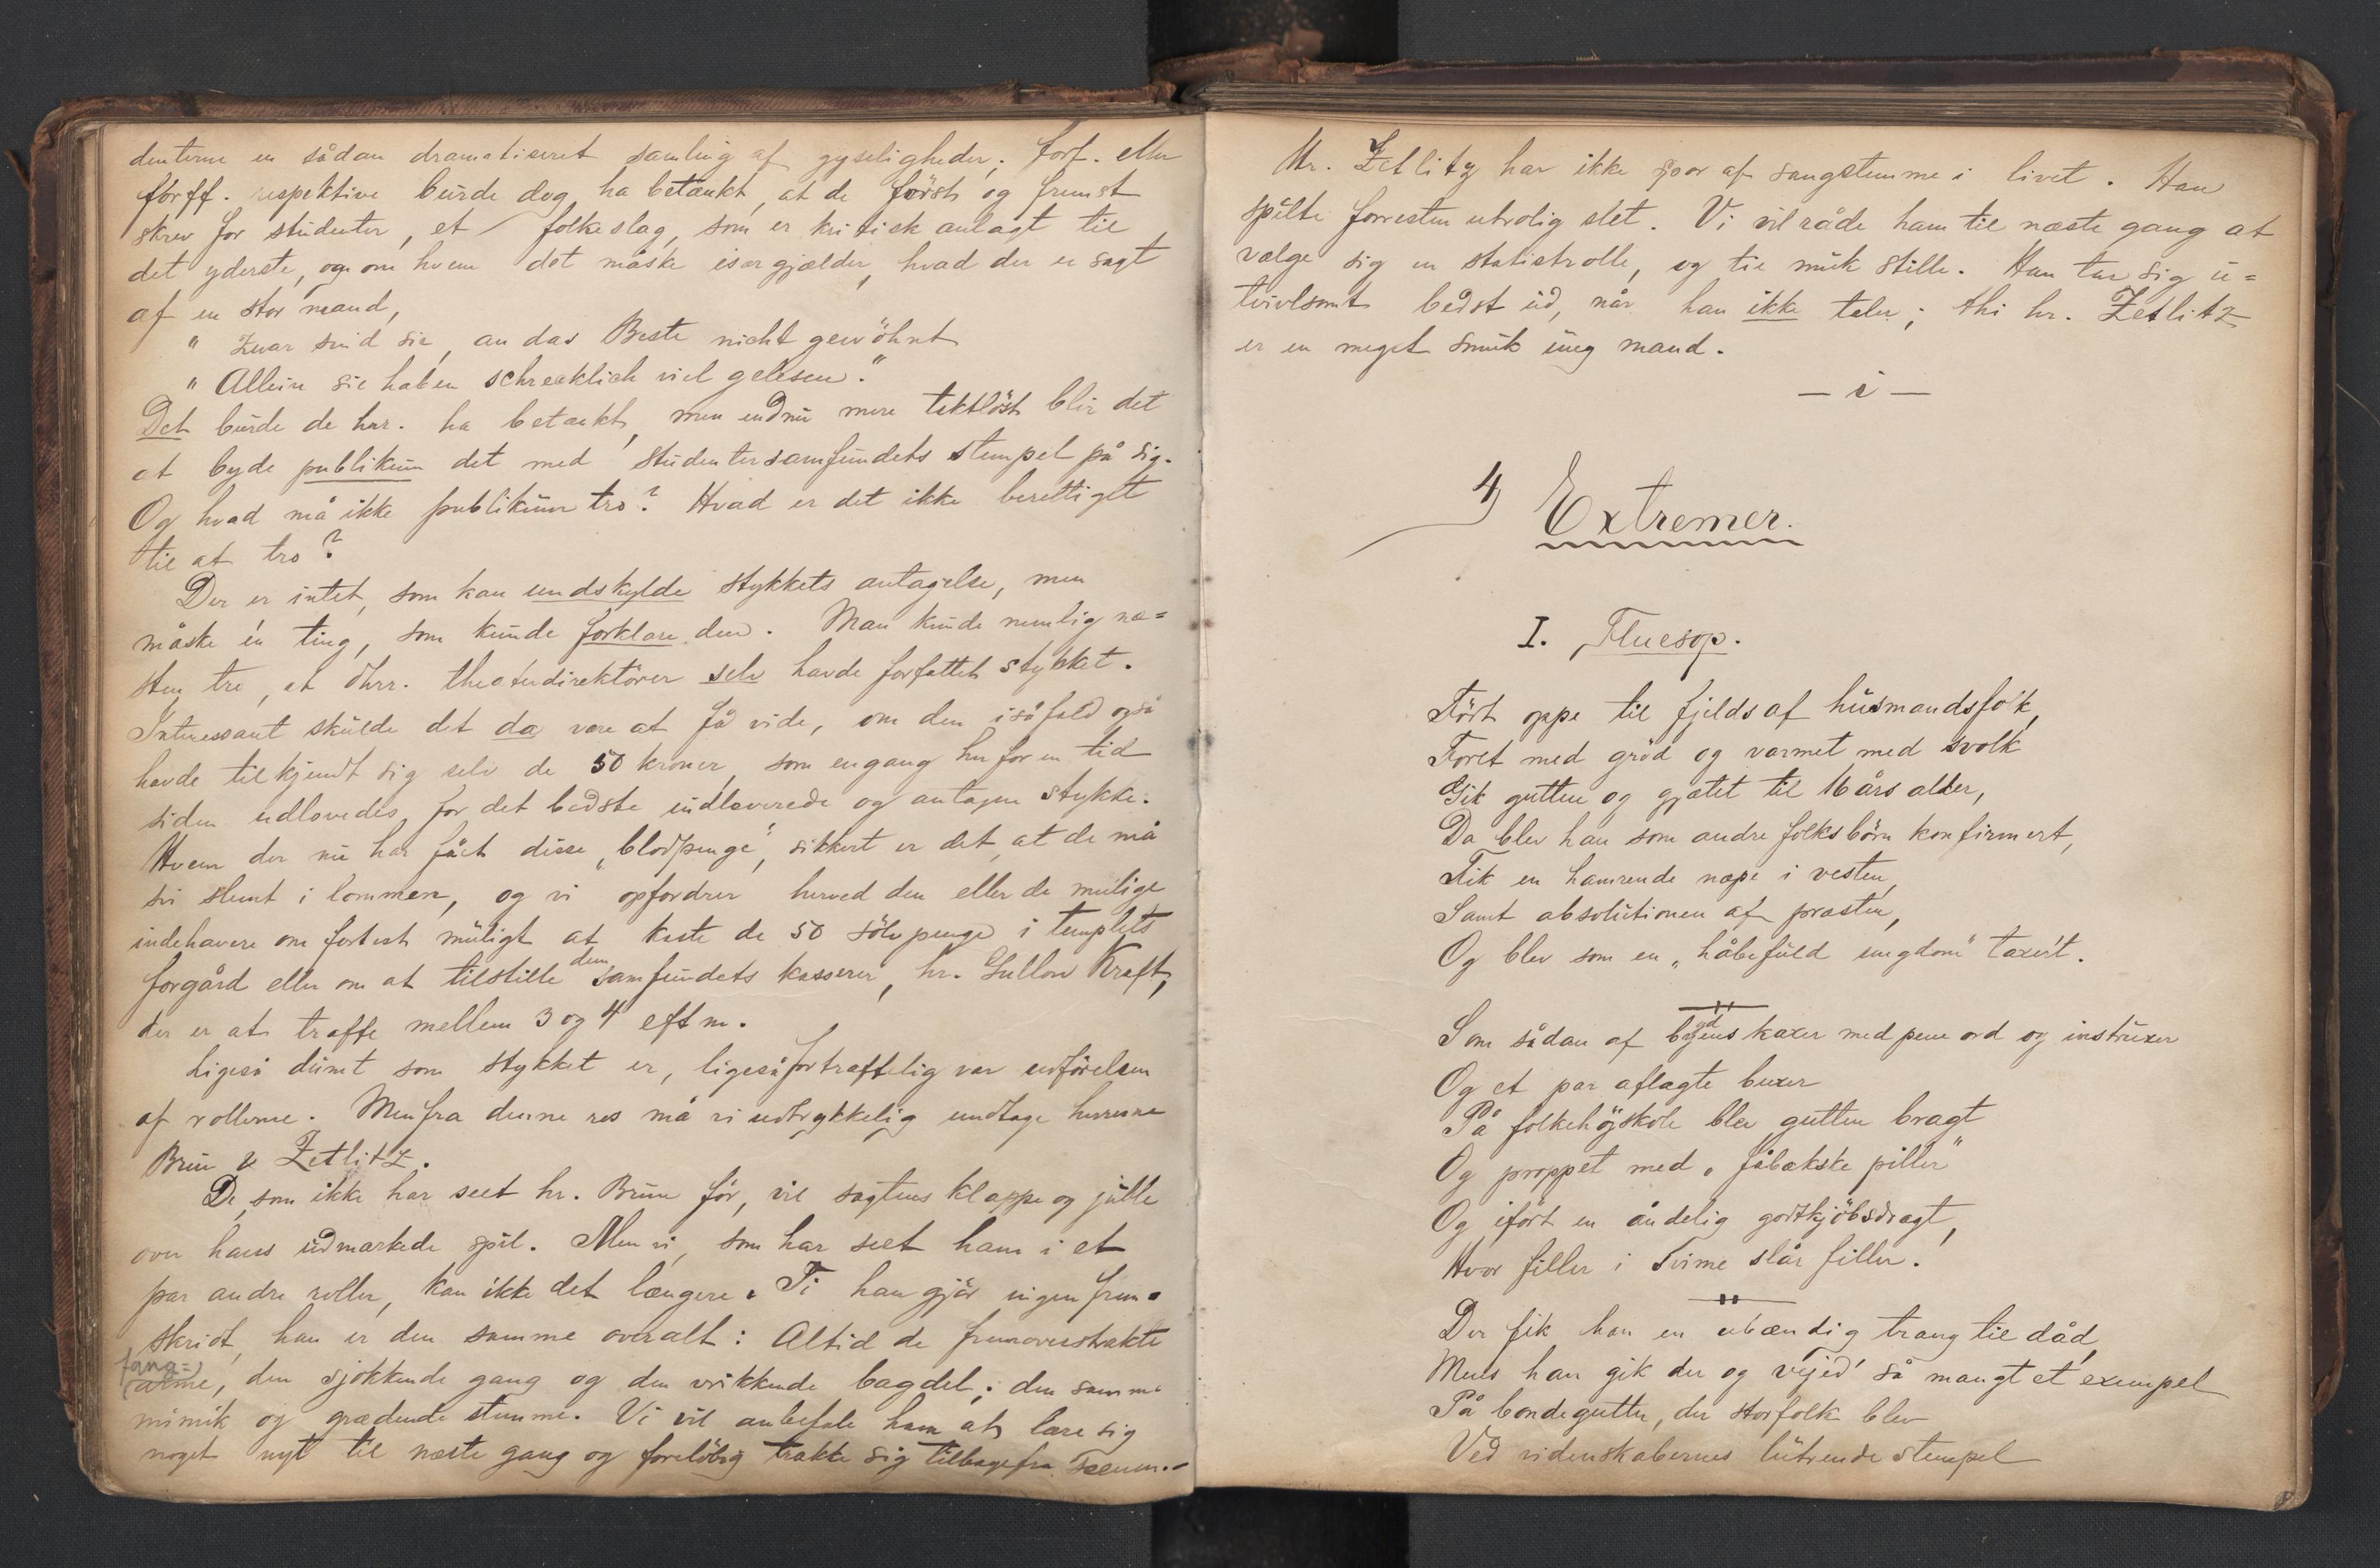 denterne en sådan dramatiseret samling af gyseligheder. Forf. eller
forff. respektive burde dog ha betænkt, at de först og fremst
skrev for studenter, et folkeslag, som er kritisk anlagt til
det yderste, og om hvem det måske især gjælder, hvad der er sagt
af en stor mand,
" Zwar sind sie, an das Beste nicht gewöhnt
" Allein sie haben schrecklich viel gelesen."
Det burde de hrr. ha betænkt, men endnu mere taktlöst blir det
at byde publikum det med studentersamfundets stempel på sig.
Og hvad må ikke publikum tro? Hvad er det ikke berettiget
til at tro?
Der er intet, som kan undskylde stykkets antagelse, men
måske én ting, som kunde forklare den. Man kunde nemlig næ=
sten tro, at dhrr. theaterdirektörer selv havde forfattet stykket.
Interessant skulde det da være at få vide, om den i så fald også
havde tilkjendt sig selv de 50 kroner, som engang her for en tid
siden udlovedes for det bedste indleverede og antagne stykke.
Hvem der nu har fået disse „blodpenge", sikkert er det, at de må
svi slemt i lommen, og vi opfordrer herved den eller de mulige
indehavere om fortest muligt at kaste de 50 sölvpenge i templets
forgård eller om at tilstille dem samfundets kasserer, hr. Gullow Kraft,
der er at træffe mellem 3 og 4 eftm.
Ligeså dumt som stykket er, ligeså fortræffelig var udförelsen
af rollerne. Men fra denne ros må vi udtrykkelig undtage herrerne
Brun & Zetlitz.
De, som ikke har seet hr. Brun för, vil sagtens klappe og juble
over hans udmærkede spil. Men vi, som har seet ham i et
par andre roller, kan ikke det længere. Ti han gjör ingen frem=
skridt, han er den samme overalt: Altid de fremoverstrakte
fang=)
(arme, den sjokkende gang og den vrikkende bagdel; den samme
mimik og grædende stemme. Vi vil anbefale ham at lære sig
noget nyt til næste gang og foreløbig trække sig tilbage fra scenen.
Hr. Zetlitz har ikke spor af sangstemme i livet. Han
spilte forresten utrolig slet. Vi vil råde ham til næste gang at
vælge sig en statistrolle, og tie muk stille. Han tar sig u=
tvivlsomt bedst ud, når han ikke taler; thi hr. Zetlitz
er en meget smuk ung mand.
— i —
4) Extremer.
I. Fluesop.
Födt oppe til fjelds af husmandsfolk,
Foret med gröd og varmet med svolk
Gik gutten og gjætet til 16 års alder,
Da blev han som andre folksbörn konfirmert,
Fik en hamrende næpe i vesten,
Samt absolutionen af præsten,
Og blev som en „håbefuld ungdom" taxert.
Som sådan af bygdens kaxer med pene ord og instruxer
Og et par aflagte buxer
På folkehöjskole blev gutten bragt
Og proppet med „fåbækske piller"
Og iført en åndelig godtkjöbsdragt,
Hvor filler i Svime slår filler.
Der fik han en ubændig trang til dåd,
Mens han gik der og vejed' så mangt et exempel
På bondegutter, der storfolk blev
Ved videnskabernes lutrende stempel